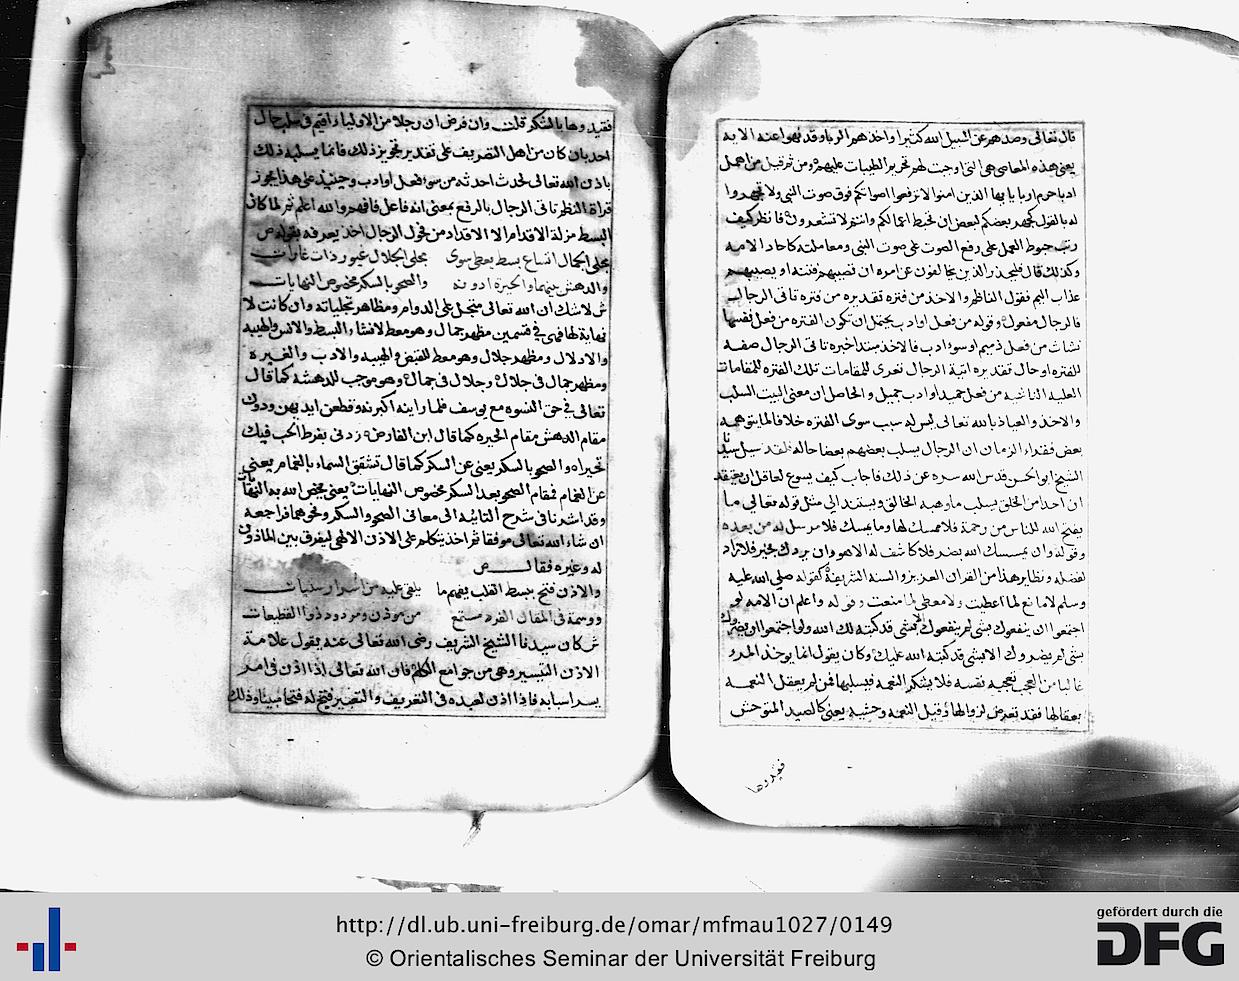 قال تعالى وصدهم عن سبيل الله كثيرا واخذهم الربا وقد نهوا عنه الايه
يعنى هذه المعاصى هى التى اوجبت لهم تحريم الطيبات عليهم ومن ثم قيل من اهمل
ادبا حرم اربا يا ايها الذين امنوا لا ترفعوا اصواتكم فوق صوت النبى ولا تجهروا
له بالقول كجهر بعضكم لبعض ان تحبط اعمالكم وانتم لا تشعرون فانظر كيف
رتب حبوط العمل على رفع الصوت على صوت النبى ومعاملته كاحاد الامه
وكذلك قال فليحذر الذين يخالفون عن امره ان تصيبهم فتنه او يصيبهم
عذاب اليم فقول الناظم والاخذ من فتره تقديره من فتره تاتى الرجال
فالرجال مفعول وقوله من فعل اوادب يحتمل ان تكون الفتره من فعل نفسها
نشات من فعل ذميم او سوء ادب فالاخذ مبتدا خبره تاتى الرجال صفه
للفتره او حال تقديره اتية الرجال تعرى للمقامات تلك الفتره للمقامات
العليه الناشيه من فعل حميد او ادب جميل والحاصل ان معنى البيت السلب
والاخذ والعياذ بالله تعالى ليس له سبب سوى الفتره خلافا لما يتوهمه
بعض فقراء الزمان ان الرجال يسلب بعضهم بعضا حاله فقد سيل سيدنا
الشيخ ابو الحسن قدس الله سره عن ذلك فاجاب كيف يسوغ لعاقل ان يعتقد
ان احدا من الخلق يسلب ما وهبه الخالق ويستند الى مثل قوله تعالى ما
يفتح الله للناس من رحمة فلا ممسك لها وما يمسك فلا مرسل له من بعده
وقوله وان يمسسك الله بضر فلا كاشف له الا هو وان يردك بخير فلا راد
لفضله ونظاير هذا من القران العزيز والسنه الشريفة كقوله صلى الله عليه
وسلم لا مانع لما اعطيت ولا معطى لما منعت وقوله واعلم ان الامه لو
اجتمعوا ان ينفعوك بشى لم ينفعوك الا بشى قد كتبه لك الله ولو اجتمعوا ان يضروك
بشى لم يضروك الا بشى قد كتبه الله عليك وكان يقول انما يوخذ المرء
غالبا من العجب تعجبه نفسه فلا يشكر النعمه فيسلبها فمن لم يعقل النعمه
بعقالها فقد تعرض لزوالها وقيل النعمه وحشيه يعنى كالصيد المتوحش
فقيدوها
فقيدوها بالشكر قلت وان فرض ان رجلا من الاولياء اقيم فى سلب حال
احد بان كان من اهل التصريف على تقدير تجويز ذلك فانما يسلبه ذلك
باذن الله تعالى لحدث احدثه من سوء فعل او ادب وحينيذ على هذا يجوز
قراة النظم تاتى الرجال بالرفع بمعنى انه فاعل فافهم والله اعلم ثم لما كان
البسط مزلة الاقدام الا الاقدام من فحول الرجال اخذ يعرفه بقوله ص
مجلى الجمال اتساع بسط يعطى سوى مجلى الجلال غيور ذات غارات
والدهش بينهما والحيرة ادونه والصحو بالسكر مخصوص النهايات
ش لا شك ان الله تعالى متجل على الدوام ومظاهر تجلياته وان كانت لا
نهاية لها فهى فى قسمين مظهر جمال وهو معط لانشاء والبسط والانس والهيبه
والادلال ومظهر جلال وهو معط للقبض والهيبه والادب والغيرة
ومظهر جمال فى جلال وجلال فى جمال وهو موجب للدهشة كما قال
تعالى فى حق النسوه مع يوسف فلما راينه اكبرنه وقطعن ايديهن ودون
مقام الدهش مقام الحيره كما قال ابن الفارض زدنى بفرط الحب فيك
تحيرا ه والصحو بالسكر يعنى عن السكر كما قال تشقق السماء بالغمام يعنى
عن الغمام فمقام الصحو بعد السكر مخصوص النهايات يعنى يختص الله به النهايات
وقد اشرنا فى شرح التائيه الى معانى الصحو والسكر ونحوهما فراجعه
ان شاء الله تعالى موفقا ثم اخذ يتكلم على الاذن الالهى ليفرق بين الماذون
له وغيره فقال ص
والاذن فتح ببسط القلب يفهم ما يلقى عليه من اسرار سنيات
ووسمة فى المقال الفرد من موذن ومردود ذو القطيعات
ش كان سيدنا الشيخ الشريف رضى الله تعالى عنه يقول علامة
الاذن التيسير وهى من جوامع الكلم فان الله تعالى اذا اذن فى امر
يسر اسبابه فاذا اذن لعبده فى التعريف والتعبير فتح له فتحا مبينا وذلك
http://dl.ub.uni-freiburg.de/omar/mfmau1027/0149
© Orientalisches Seminar der Universität Freiburg
gefördert durch die
DFG